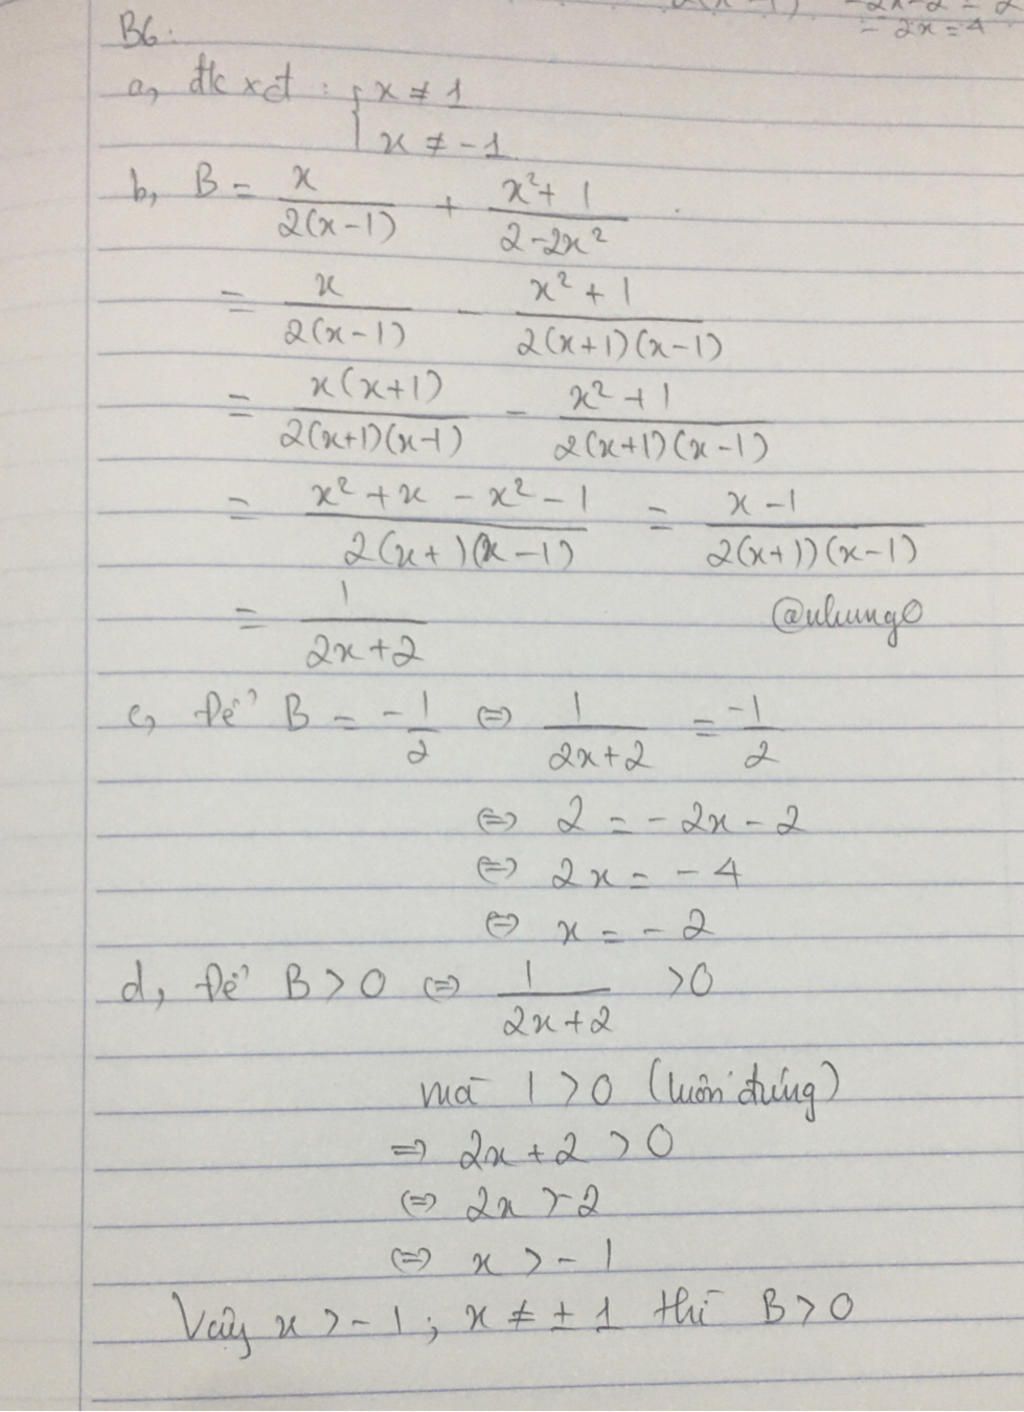 -2x-2 = 2
= 2x = 4
B6:
a, đk xđ : { x ≠ 1
x ≠ -1
b, B = x/2(x-1) + x²+1/2-2x²
= x/2(x-1) - x²+1/2(x+1)(x-1)
= x(x+1)/2(x+1)(x-1) - x²+1/2(x+1)(x-1)
= x²+x-x²-1/2(x+)(x-1) = x-1/2(x+1)(x-1)
= 1/2x+2 @nhung0
c, Để B = -1/2 ⇔ 1/2x+2 = -1/2
⇔ 2 = -2x-2
⇔ 2x = -4
⇔ x = -2
d, Để B > 0 ⇔ 1/2x+2 > 0
mà 1 > 0 (luôn đúng)
⇒ 2x+2 > 0
⇔ 2x > -2
⇔ x > -1
Vậy x > -1; x ≠ ± 1 thì B > 0